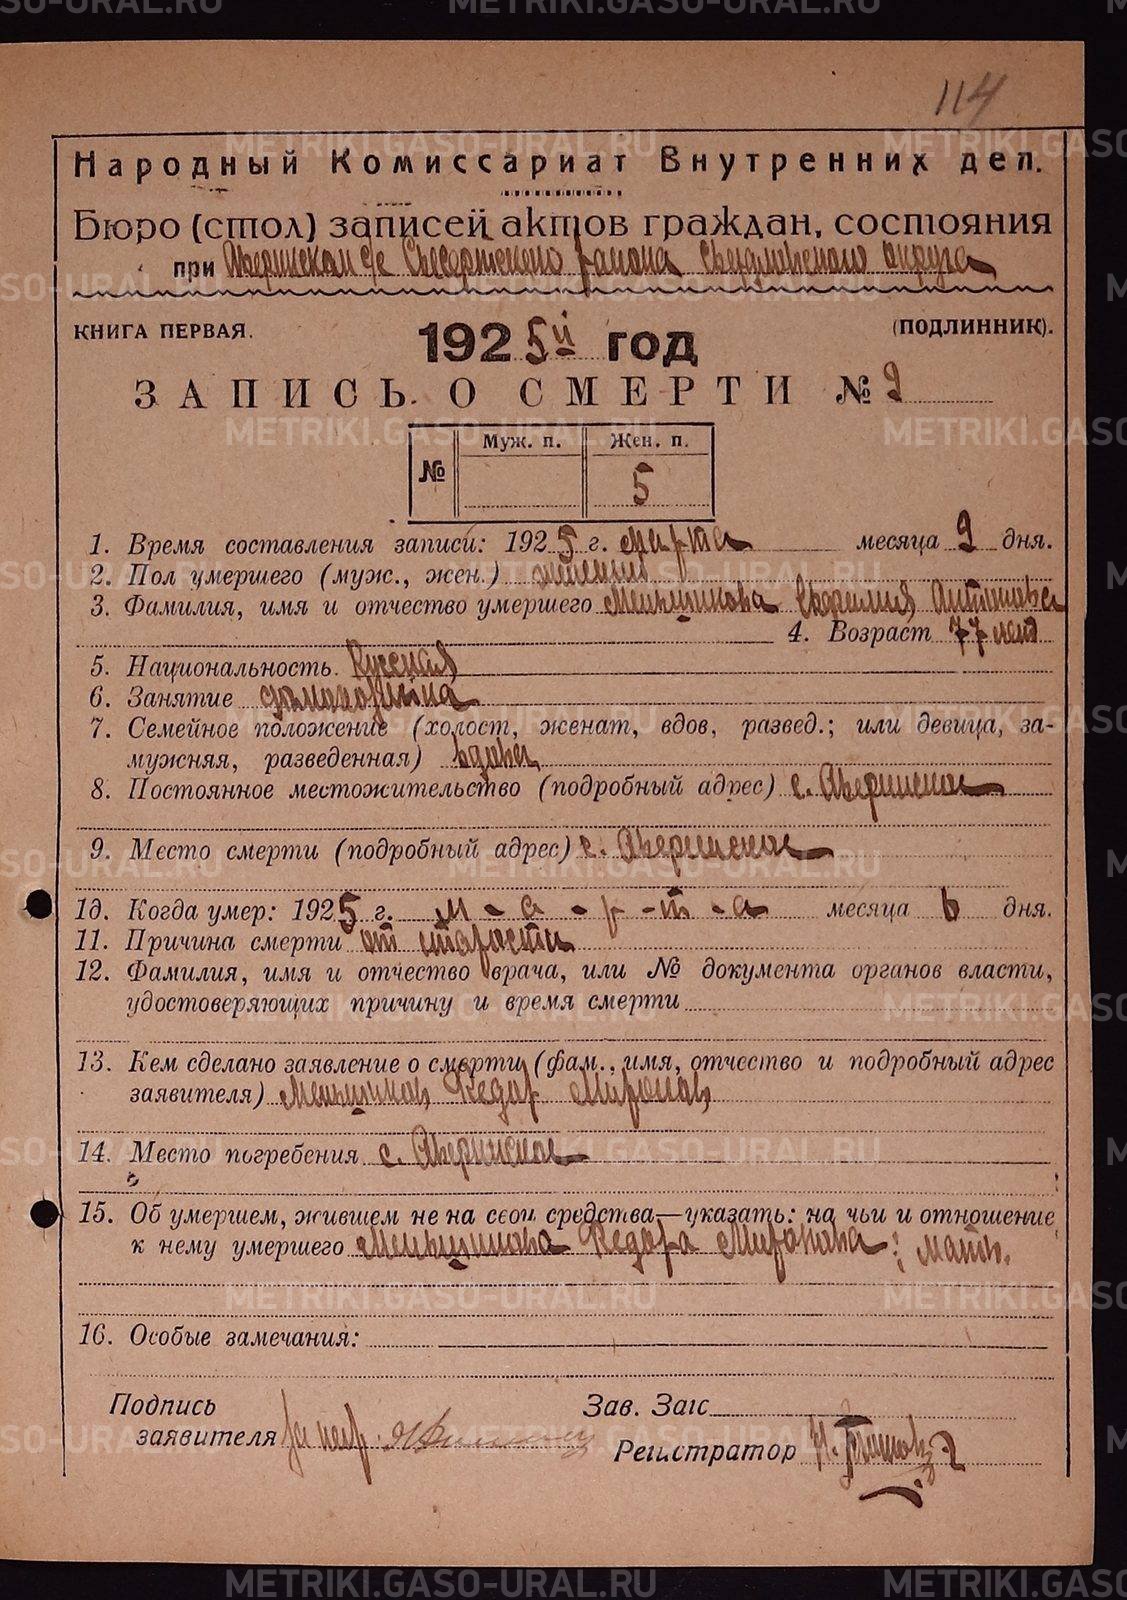 METRIKI.GASO-URAL.RU
114
METRIKI.GASO-URAL.RU
Народный Комиссариат Внутренних дел.
Бюро (стол) записей актов граждан, состояния
при Аверинском с/с Сысертского района Свердловского округа
КНИГА ПЕРВАЯ. 1925й год (ПОДЛИННИК).
ЗАПИСЬ О СМЕРТИ № 9
METRIKI.GASO-URAL.RU
№ Муж. п. Жен. п.
5
1. Время составления записи: 1925 г. марта месяца 9 дня.
2. Пол умершего (муж., жен.) женский
3. Фамилия, имя и отчество умершего Меньщикова Антонова
4. Возраст 77 лет
5. Национальность. Русская
6. Занятие домохозяйка
7. Семейное положение (холост, женат, вдов, развед.; или девица, за-
мужняя, разведенная) вдова
METRIKI.GASO-URAL.RU
8. Постоянное местожительство (подробный адрес) с. Аверинское
9. Место смерти (подробный адрес) с. Аверинское
10. Когда умер: 1925 г. м-а-р-т-а месяца 6 дня.
11. Причина смерти от старости
12. Фамилия, имя и отчество врача, или № документа органов власти,
удостоверяющих причину и время смерти
METRIKI.GASO-URAL.RU
13. Кем сделано заявление о смерти (фам., имя, отчество и подробный адрес
заявителя) Меньщиков Федор Миронов
14. Место погребения с. Аверинское
15. Об умершем, жившем не на свои средства—указать: на чьи и отношение
к нему умершего Меньщикова Федора Миронова: мать.
METRIKI.GASO-URAL.RU
16. Особые замечания:
Подпись Зав. Загс
заявителя за негр.
Регистратор
METRIKI.GASO-URAL.RU